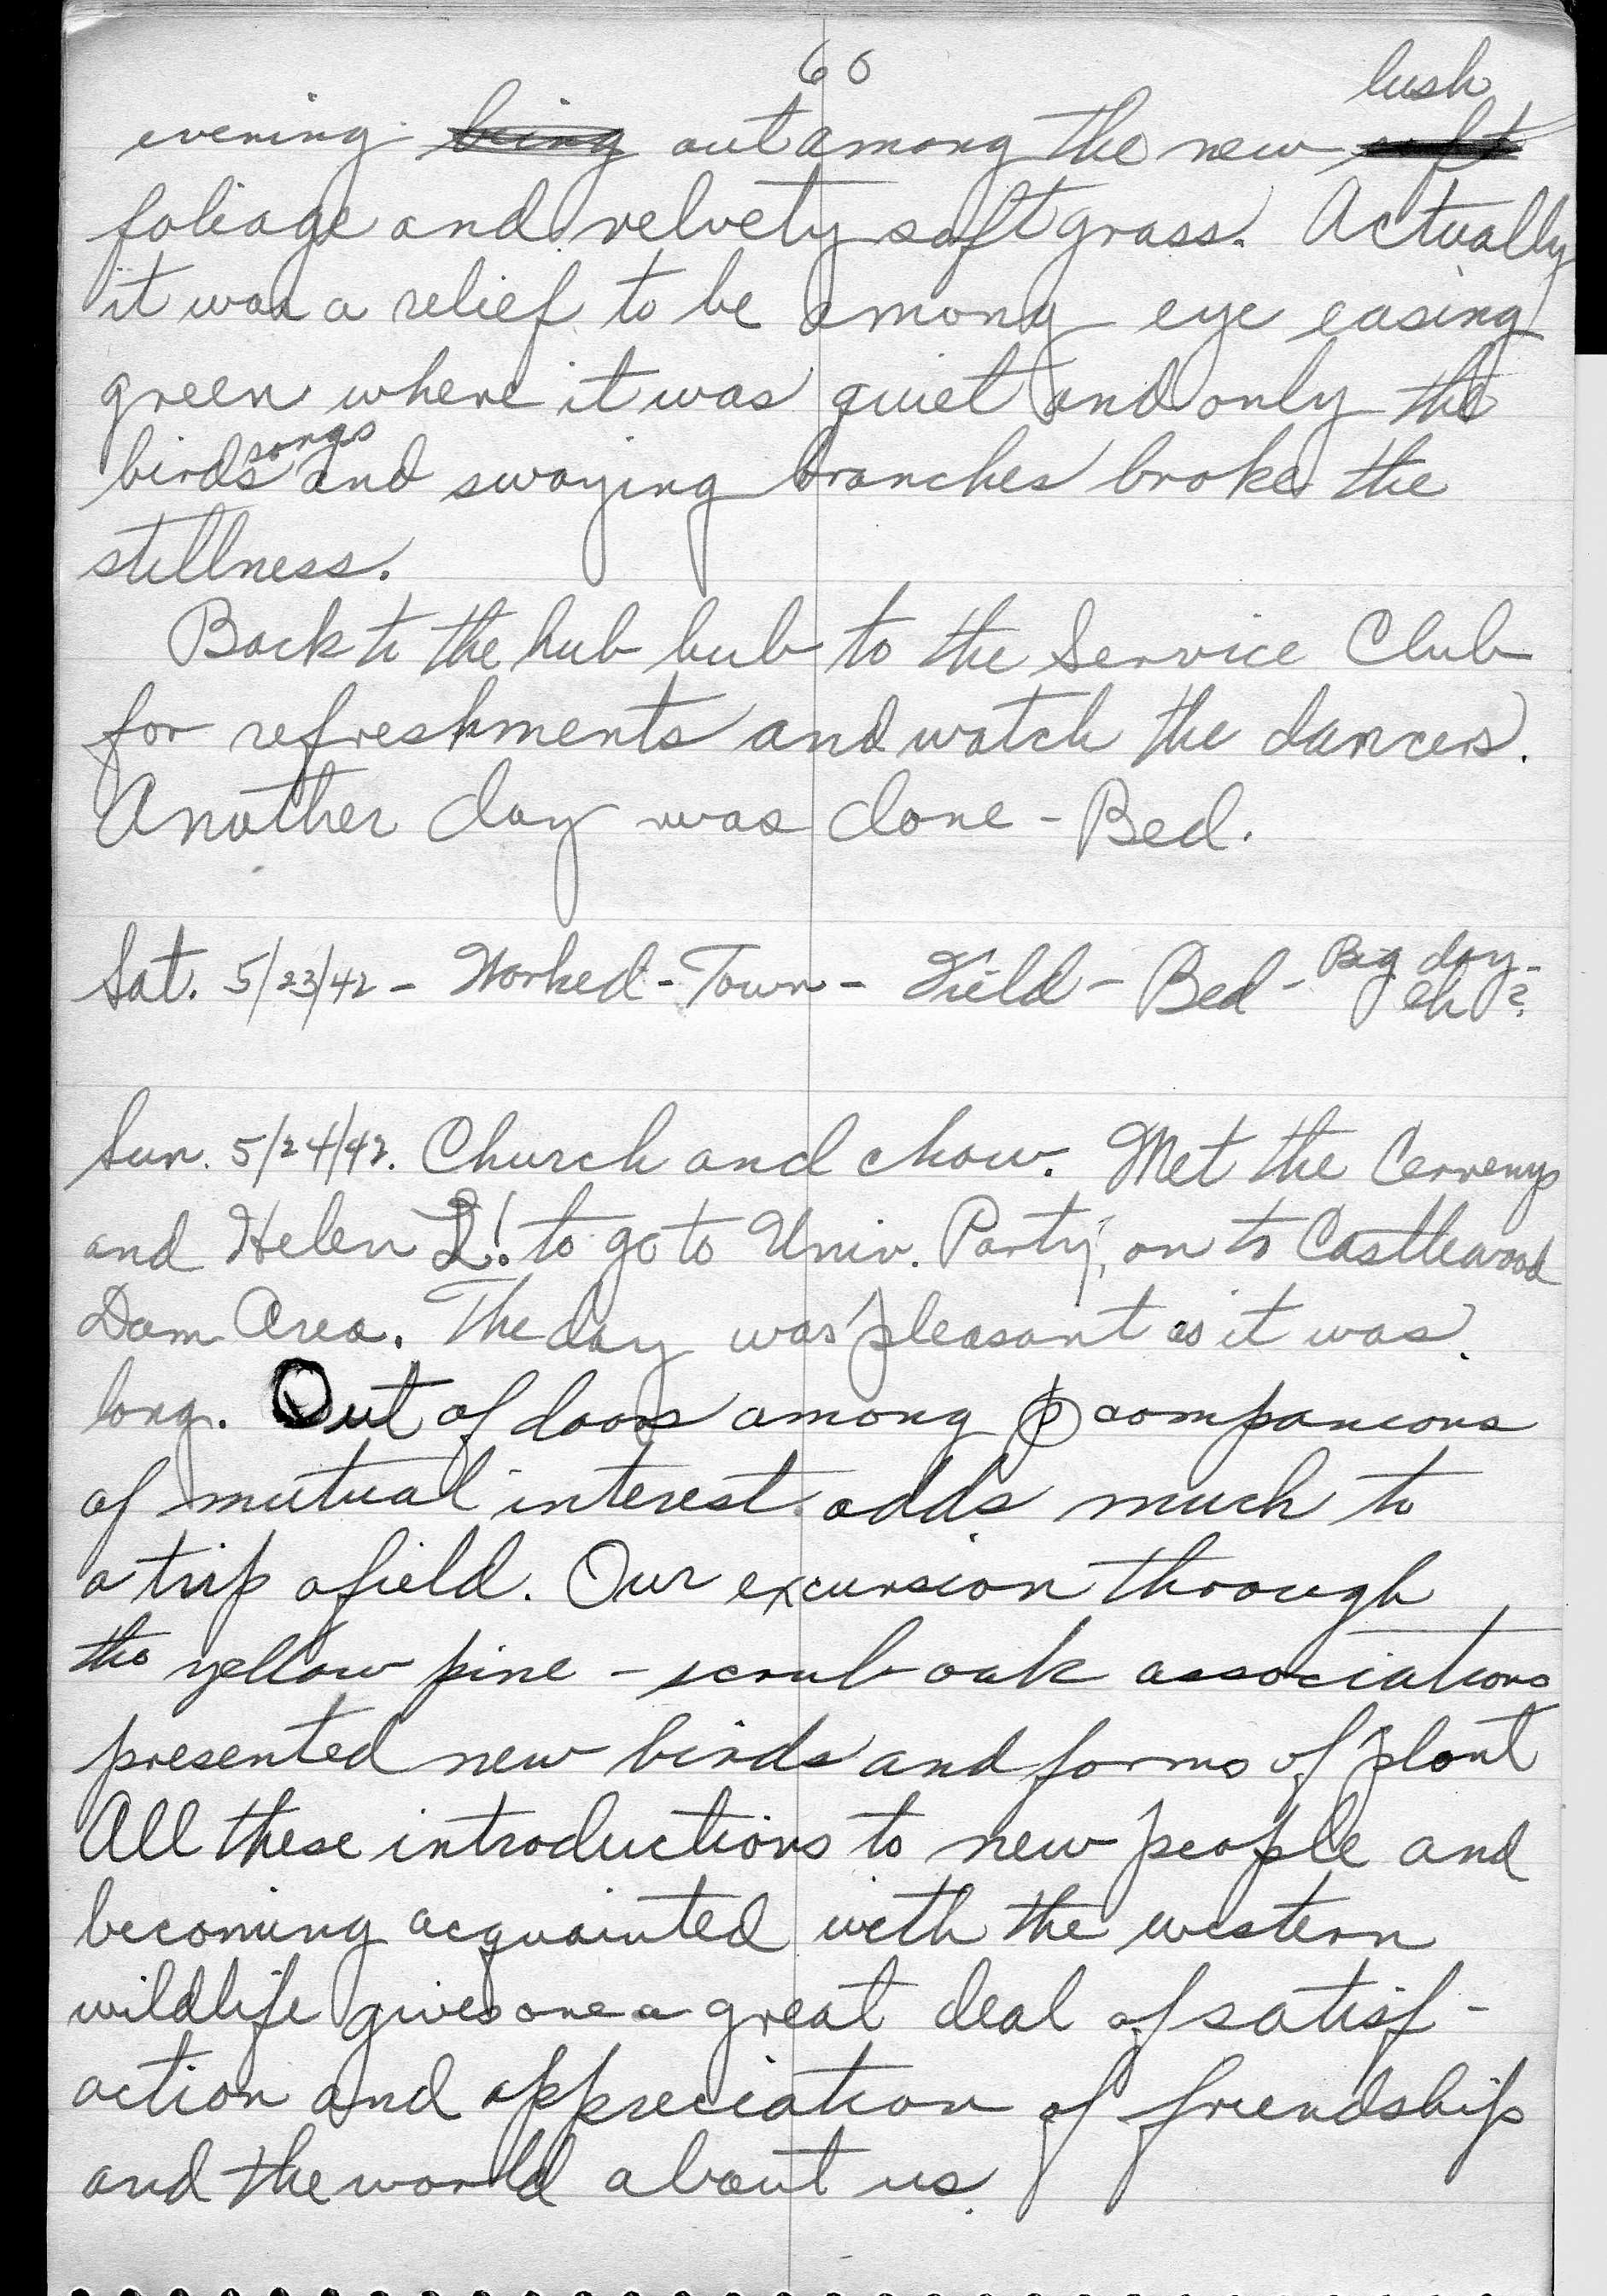 60
evening being out among the new soft lush
foliage and velvety soft grass. Actually
it was a relief to be among eye easing
green where it was quiet and only the
birds songs and swaying branches broke the
stillness.
Back to the hub bub to the Service Club
for refreshments and watch the dancers.
Another day was done - Bed.
Sat. 5/23/42 - Worked - Town - Field - Bed - Big day - eh?
Sun. 5/24/42. Church and chow. Met the Cervenys
and Helen L! to go to Univ. Party, on to Castlewood
Dam Area. The day was pleasant as it was
long. Out of doors among companions
of mutual interest adds much to
a trip afield. Our excursion through
the yellow pine - scrub oak associations
presented new birds and forms of plant
All these introductions to new people and
becoming acquainted with the western
wildlife gives one a great deal of satisf-
action and appreciation of friendship
and the world about us.